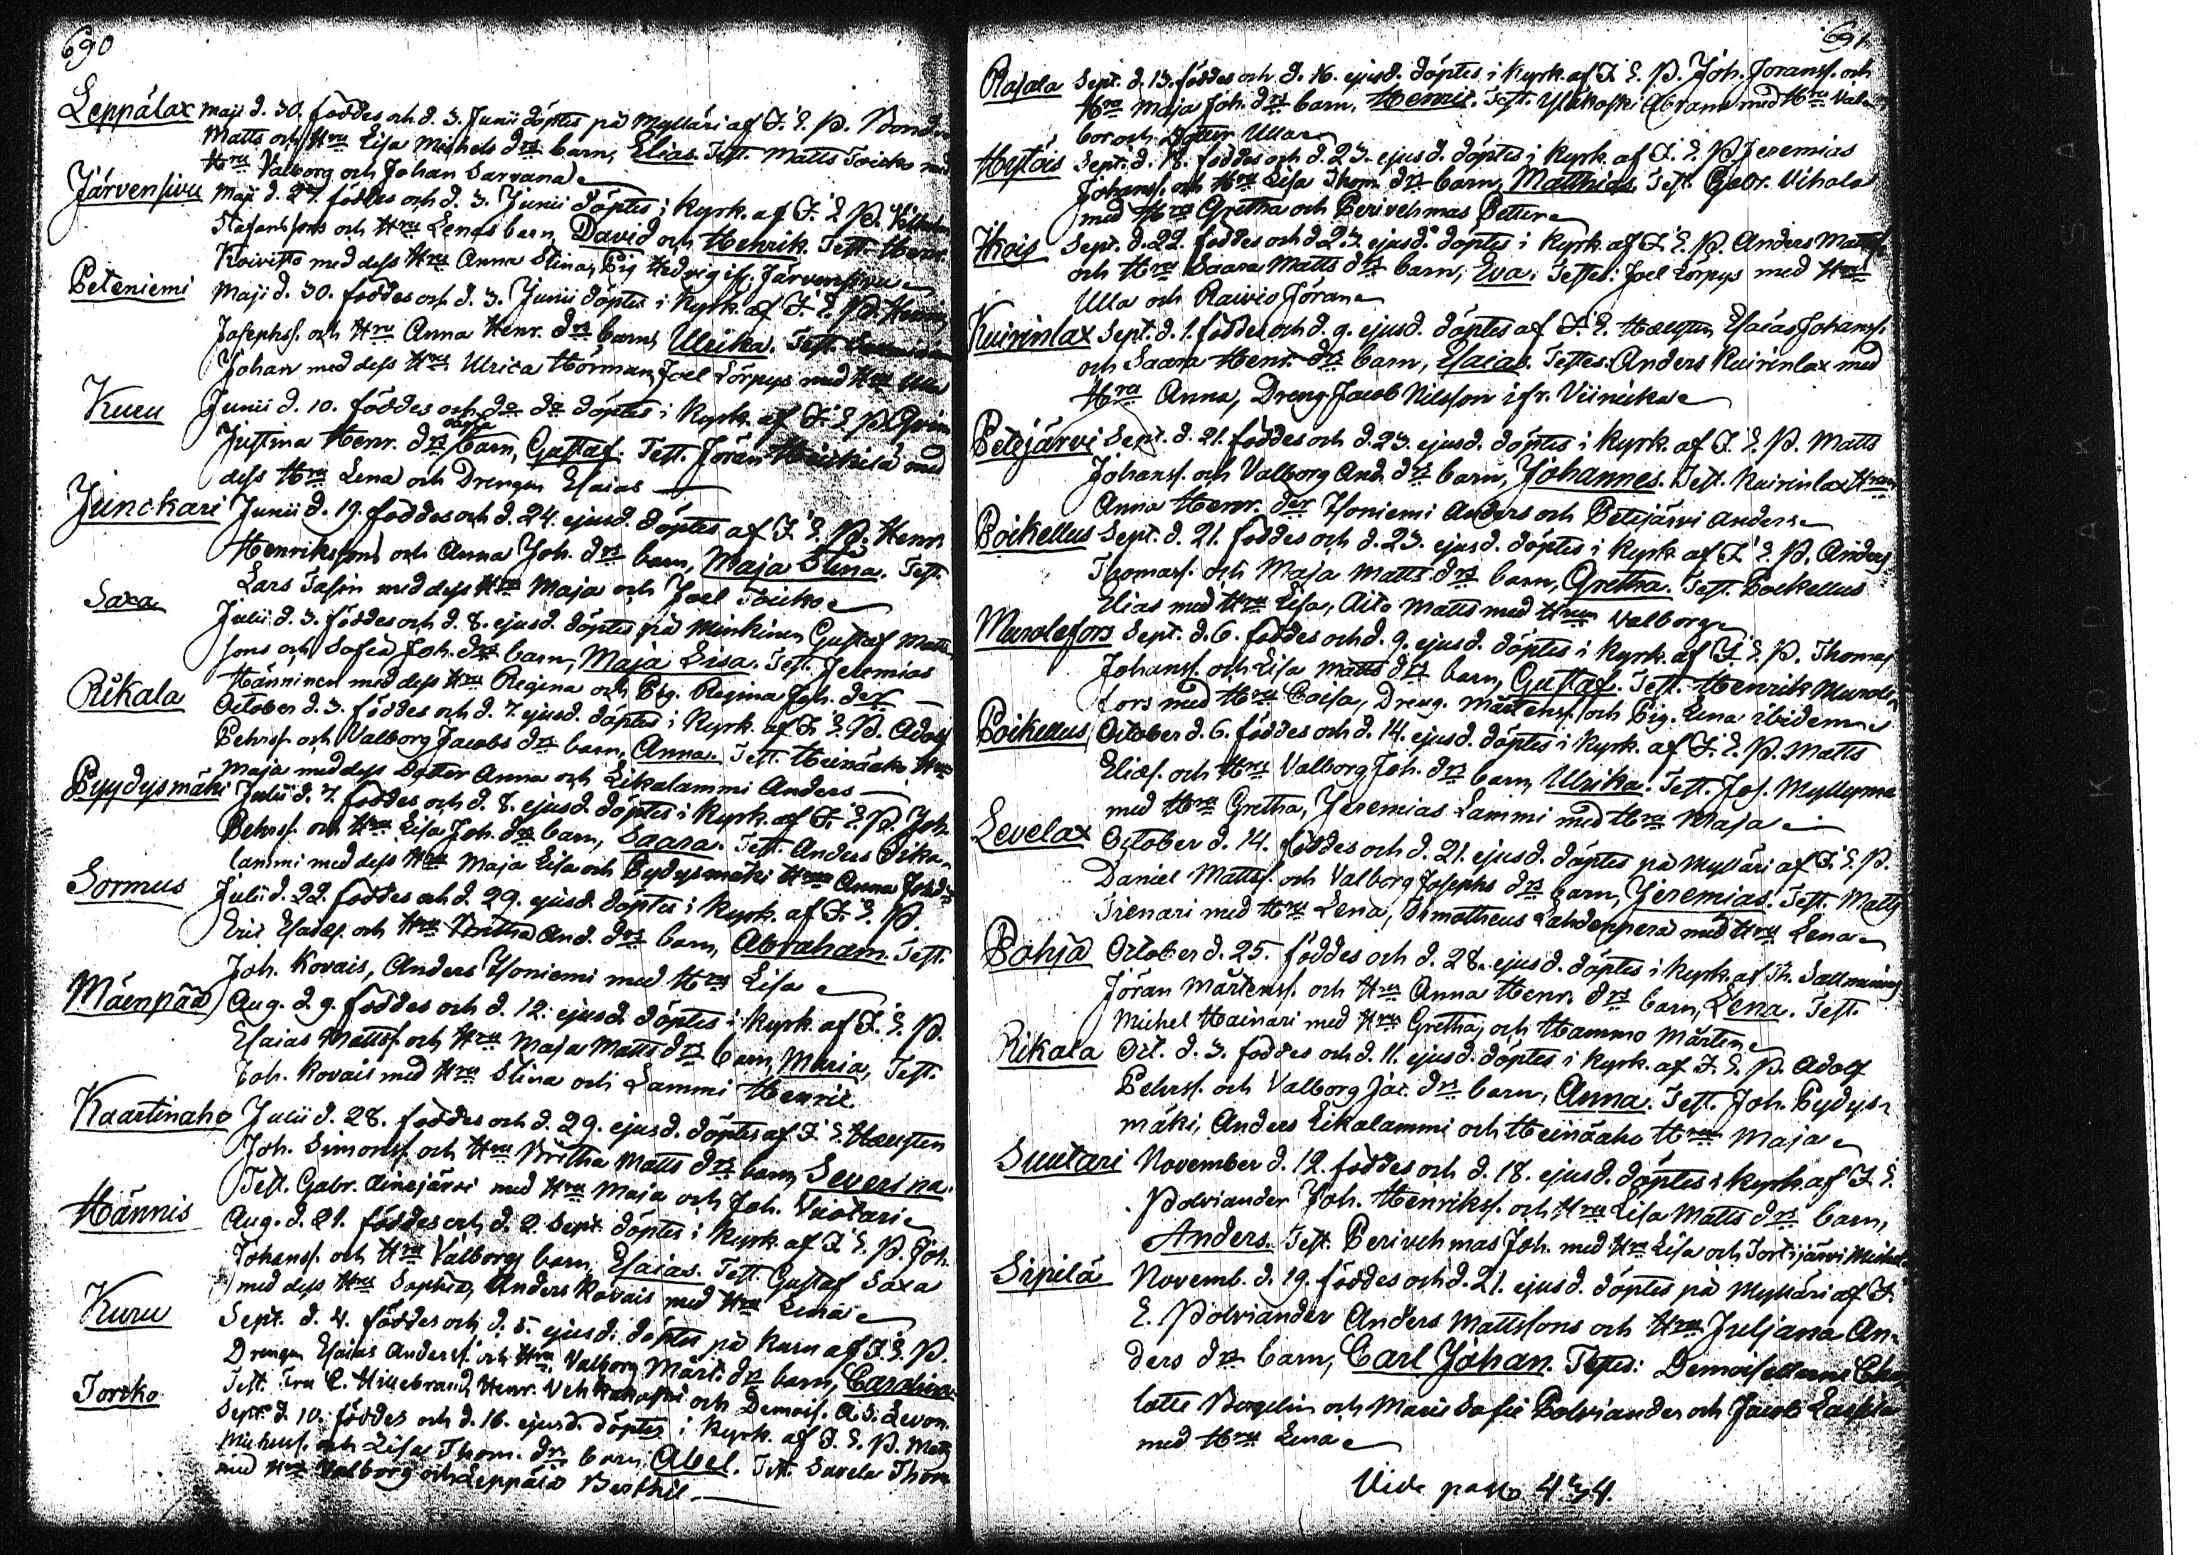 690
Leppälax Maji d. 30. föddes och d. 3. Junii döptes på Mylläri af F. E. P. Bonden
Matts och Hru Lisa Michels drs barn, Elias. Test. Matts Toisko med
Hru Valborg och Johan Sarvana
Järvensivu Maji d. 27. föddes och d. 3. Junii döptes i Kyrk. af F. E. P.
Stafanssons och Hru Lenas barn David och Henrik. Test. Henr.
Koivisto med dess Hru Anna Stina, Pig. Hedvig ifr. Järvensivu
Peteniemi Maji d. 30. föddes och d. 3. Junii döptes i Kyrk. af F. E. P. Henrik
Josephss. och Hru Anna Henr. drs barn, Ulrika. Test.
Johan med dess Hru Ulrica Hörman, Joel Lörpys med Hru Ulla
Kuru Junii d. 10. föddes och do do döptes i Kyrk. af F. E. P.
Justina Henr. drs barn, Gustaf. Test. Jöran Heickilä med
dess Hru Lena och Drengen Esaias
Junckari Junii d. 19. föddes och d. 24. ejusd. döptes af F. E. P. Henr.
Henrikssons och Anna Joh. drs barn, Maja Stina. Test.
Lars med dess Hru Maja och Joel Toicko
Saxa Julii d. 3. föddes och d. 8. ejusd. döptes på Minkinen Gustaf Matts
sons och Sofia Joh. drs barn, Maja Lisa. Test. Jeremias
Hänninen med dess Hru Regina och Pig. Regina Joh. der
Rikala October d. 3. föddes och d. 7. ejusd. döptes i Kyrk. af F. E. P. Adolf
Pehrss. och Valborg Jacobs drs barn, Anna. Test. Heinäaho Hru
Maja med dess Dotter Anna och Likalammi Anders
Pyydysmäki Julii d. 7. föddes och d. 8. ejusd. döptes i Kyrk. af F. E. P. Joh.
Pehrss. och Hru Lisa Joh. drs barn, Saara. Test. Anders Sika-
lammi med dess Hru Maja Lisa och Pydysmäki Hrun Anna
Sormus Julii d. 22. föddes och d. 29. ejusd. döptes i Kyrk. af F. E. P.
Eric Esaiæs. och Hru Britha And. drs barn, Abraham. Test.
Joh. Kovais, Anders Ysoniemi med Hru Lisa
Mäenpää Aug. d. 9. föddes och d. 12. ejusd. döptes i Kyrk. af F. E. P.
Esaias Mattss. och Hru Maja Matts drs barn, Maria, Test.
Joh. Kovais med Hru Stina och Lammi Henric.
Kaartinaho Julii d. 28. föddes och d. 29. ejusd. döptes af F. E. Hæusten
Joh. Simonss. och Hru Britha Matts drs barn, Severina.
Test. Gabr. Ainejärvi med Hru Maja och Joh. Viotari
Hännis Aug. d. 21. föddes och d. 2. Sept. döptes i Kyrk. af F. E. P. Joh.
Johanss. och Hru Valborgs barn, Esaias. Test. Gustaf Saxa
med dess Hru Sophia, Anders Kovais med Hru Lena
Kuru Sept. d. 4. föddes och d. 5. ejusd. döptes på Kuru af F. E. P.
Drengen Esaias Anderss. och Hru Valborg Märt. drs barn, Carolina.
Test. Fru C. Hillebrand, Henr. Vehkakoski och Demois. A. S. Levon.
Toicko Sept. d. 10. föddes och d. 16. ejusd. döptes i Kyrk. af F. E. P. Matts
Michelss. och Lisa Thom. drs barn, Abel. Test. Savela Thom.
med Hru Valborg och Leppälä Berthil
691.
Rajala Sept. d. 13. föddes och d. 16. ejusd. döptes i Kyrk. af F. E. P. Joh. Joranss. och
Hru Maja Joh. drs barn, Henric. Test. Yläkoski Abram med Hru Val-
bor och Dotter Ulla
Hystöis Sept. d. 18. föddes och d. 23. ejusd. döptes i Kyrk. af F. E. P. Jeremias
Johanss. och Hru Lisa Thom. drs barn, Matthias. Test. Gabr. Vihola
med Hru Gretha och Perivehmas Petter
Hois Sept. d. 22. föddes och d. 23. ejusd. döptes i Kyrk. af F. E. P. Anders Mattss
och Hru Saara Matts drs barn, Eva. Testes: Joel Lörpys med Hru
Ulla och Raivio Jöran
Kuirinlax Sept. d. 1. föddes och d. 9. ejusd. döptes af F. E. Hæusten Esaias Johanss.
och Saara Henr. drs barn, Esaias. Testes. Anders Kuirinlax med
Hru Anna, Dreng. Jacob Nilsson ifr. Viinicka
Petejärvi Sept. d. 21. föddes och d. 23. ejusd. döptes i Kyrk. af F. E. P. Matts
Johanss. och Valborg And. drs barn, Johannes. Test. Kuirinlax Hrun
Anna Henr. der Ysoniemi Anders och Petejärvi Anders
Poikellus Sept. d. 21. föddes och d. 23. ejusd. döptes i Kyrk. af F. E. P. Anders
Thomass. och Maja Matts drs barn, Gretha. Test. Poikellus
Elias med Hru Lisa, Aito Matts med Hrun Valborg
Murolefors Sept. d. 6. föddes och d. 9. ejusd. döptes i Kyrk. af F. E. P. Thomas
Johanss. och Lisa Matts drs barn, Gustaf. Test. Henrik Murole-
fors med Hru Caisa, Dreng. Mårtenss. och Pig. Lena ibidem
Poikellus October d. 6. föddes och d. 14. ejusd. döptes i Kyrk. af F. E. P. Matts
Eliæs. och Hru Valborg Joh. drs barn, Ulrika. Test. Jos. Myllymä
med Hru Gretha, Jeremias Lammi med Hru Maja
Levelax October d. 14. föddes och d. 21. ejusd. döptes på Mylläri af F. E. P.
Daniel Mattss. och Valborg Josephs drs barn, Jeremias. Test. Matts
Sienari med Hru Lena, Thimotheus Lahdenperä med Hru Lena
Pohja October d. 25. föddes och d. 28. ejusd. döptes i Kyrk. af Th. Sallmenius
Jöran Mårtenss. och Hru Anna Henr. drs barn, Lena. Test.
Michel Hainari med Hru Gretha, och Hammo Mårten
Rikala Oct. d. 3. föddes och d. 11. ejusd. döptes i Kyrk. af F. E. P. Adolf
Pehrss. och Valborg Jac. drs barn, Anna. Test. Joh. Pydys-
mäki, Anders Likalammi och Heinäaho Hrun Maja
Suutari November d. 12. föddes och d. 18. ejusd. döptes i Kyrk. af F. E.
Polviander Joh. Henrikss. och Hru Lisa Matts drs barn,
Anders. Test. Perivehmas Joh. med Hru Lisa och Jortijärvi Michel
Sipilä Novemb. d. 19. föddes och d. 21. ejusd. döptes på Mylläri af F.
E. Polviander Anders Mattssons och Hru Juljana An-
ders drs barn, Carl Johan. Testes: Demoisellerne Char-
lotte Bergelin och Marie Sofie Polviander och Jacob
med Hru Lena
Vide pag. 434.
KODAK SAF